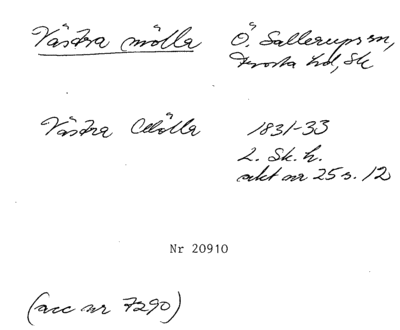 Västra mölla Ö. Sallerups sn,
Frosta hd, Sk
Västra Mölla 1831-33
L. Sk. h.
akt nr 25 s. 12
Nr 20910
(acc nr 7290)